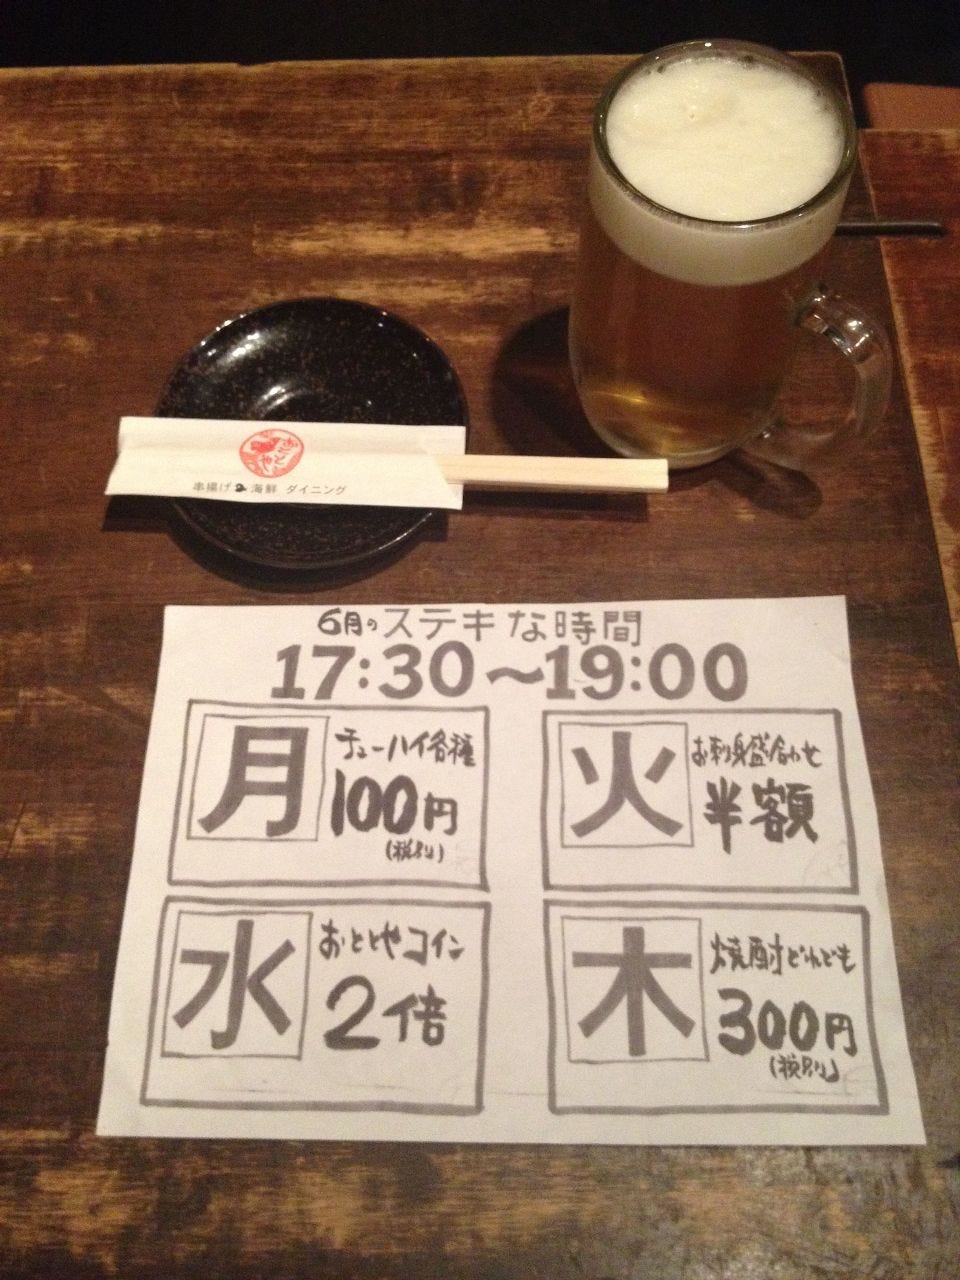 おととや
串揚げ 海鮮 ダイニング
6月のステキな時間
17:30〜19:00
月
チューハイ各種
100円
(税別)
火
お刺身盛合わせ
半額
水
おととやコイン
2倍
木
焼酎どれでも
300円
(税別)